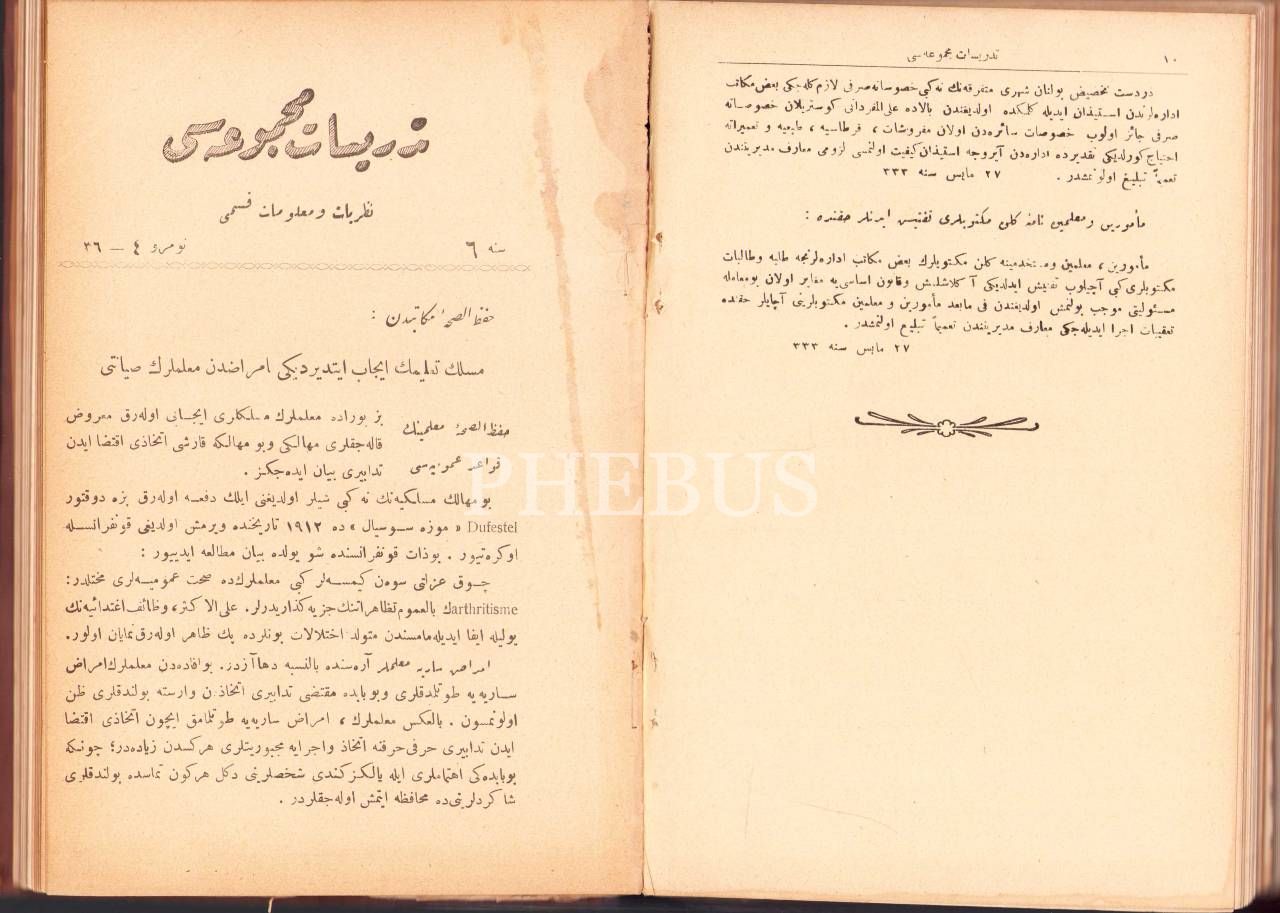 تدريسات مجموعه‌سى
نظريات و معلومات قسمى
سنه ٦
نومرو ٤ — ٣٦
حفظ الصحهٔ مكاتبدن :
مسلك تعليمك ايجاب ايتديرديكى امراضدن معلملرك صيانتى
حفظ الصحهٔ معلمينك
قواعد عموميه‌سى
بز بوراده معلملرك مسلكلرى ايجابى اوله‌رق معروض
قاله‌جقلرى مهالكى وبو مهالكه قارشى اتخاذى اقتضا ايدن
تدابيرى بيان ايده‌جكز .
بو مهالك مسلكيه‌نك نه كبى شيلر اولديغنى ايلك دفعه اوله‌رق بزه دوقتور
Dufestel « موزه سوسيال » ده ١٩١٢ تاريخنده ويرمش اولديغى قونفرانسله
اوكره‌تيور . بوذات قونفرانسنده شو يولده بيان مطالعه ايدييور :
چوق عزلتى سوه‌ن كيمسه‌لر كبى معلملرك‌ده صحت عموميه‌لرى مختلدر :
arthritismeك بالعموم تظاهراتنك جزيه‌كذاريدرلر . على الاكثر، وظائف اغتدائيه‌نك
يوليله ايفا ايديله‌مامسندن متولد اختلالات بونلرده پك ظاهر اوله‌رق نمايان اولور .
امراض ساريه معلملر آره‌سنده بالنسبه دها آزدر . بو افاده‌دن معلملرك امراض
ساريه‌يه طوتلمدقلرى وبوبابده مقتضى تدابيرى اتخاذدن وارسته بولندقلرى ظن
اولونمسون . بالعكس معلملرك ، امراض ساريه‌يه طوتلمامق ايچون اتخاذى اقتضا
ايدن تدابيرى حرفى حرفنه اتخاذ واجرايه مجبوريتلرى هركسدن زياده‌در ؛ چونكه
بوبابده‌كى اهتماملرى ايله يالكز كندى شخصلرينى دكل هركون تماسده بولندقلرى
شاكردلرينى‌ده محافظه ايتمش اوله‌جقلردر .
تدريسات مجموعه‌سى
١٠
دردست تخصيص بولنان شهرى متفرقه‌نك نه كبى خصوصاته صرفى لازم كله‌جكى بعض مكاتب
اداره‌لرندن استيذان ايديله كلمكده اولديغندن بالاده على المفردات كوستريلان خصوصاته
صرفى جائز اولوب خصوصات سائره‌دن اولان مفروشات ، قرطاسيه ، و تعميراته
احتياج كورلديكى تقديرده اداره‌دن آيروجه استيذان كيفيت اولنمسى لزومى معارف مديريتندن
تعميماً تبليغ اولونمشدر . ٢٧ مايس سنه ٣٣٣
مأمورين و معلمين نامنه كلن مكتوبلرى تفتيش ايدنلر حقنده :
مأمورين ، معلمين ومستخدمينه كلن مكتوبلرك بعض مكاتب اداره‌لرنجه طلبه وطالبات
مكتوبلرى كبى آچيلوب تفتيش ايدلديكى آكلاشلمش وقانون اساسى‌يه مغاير اولان بومعامله
مسئوليتى موجب بولنمش اولديغندن فى مابعد مأمورين و معلمين مكتوبلرينى آچانلر حقنده
تعقيبات اجرا ايديله‌جكى معارف مديريتندن تعميماً تبليغ اولنمشدر .
٢٧ مايس سنه ٣٣٣
PHEBUS